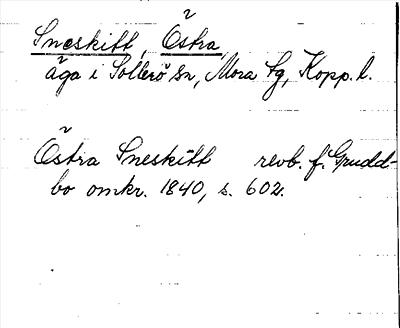 Sneskitt, Östra,
äga i Sollerö sn, Mora tg, Kopp. l.
Östra Sneskitt revb. f. Grudd-
bo omkr. 1840, s. 602.